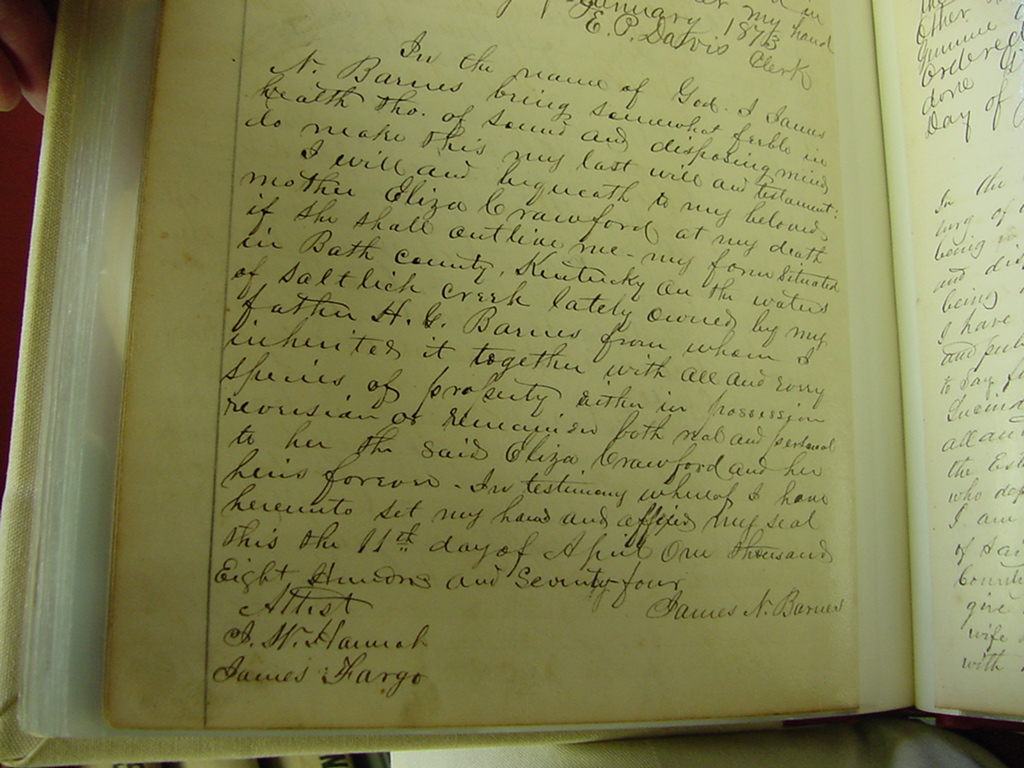 my hand in
January 1873
E. P. Davis Clerk
In the name of God. I James
N. Barnes being somewhat feeble in
health tho. of sound and disposing mind
do make this my last will and testament:
I will and bequeath to my beloved
mother Eliza Crawford at my death
if she shall outlive me - my farm situated
in Bath county, Kentucky on the waters
of Saltlick creek lately owned by my
father H. G. Barnes from whom I
inherited it together with all and every
species of property either in possession
reversion or remainder both real and personal
to her the said Eliza Crawford and her
heirs forever - In testimony whereof I have
hereunto set my hand and affixed my seal
this the 11th day of April One thousand
Eight Hundred and Seventy four
Attest James N. Barnes
J. W. Hannah
James Fargo
other
ordered
done
Day of
In the
being
and
being
I have
all and
the Est
who
I am
of
County
give
wife
with